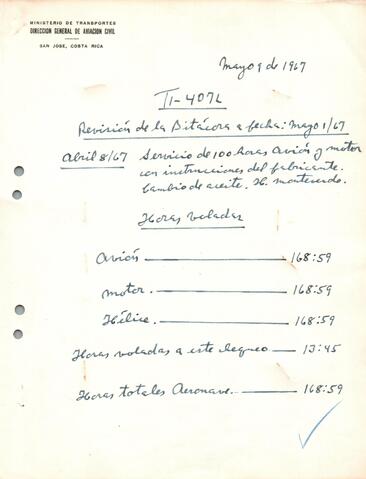 MINISTERIO DE TRANSPORTES
DIRECCION GENERAL DE AVIACION CIVIL
SAN JOSE, COSTA RICA
Mayo 9 de 1967
TI-407L
Revisión de la Bitácora a fecha: Mayo 1/67
Abril 8/67 Servicio de 100 horas Avión y motor
con instrucciones del fabricante.
Cambio de aceite. H. Monteverdo.
Horas voladas
Avión 168:59
Motor. 168:59
Hélice. 168:59
Horas voladas a este chequeo 13:45
Horas totales Aeronave. 168:59